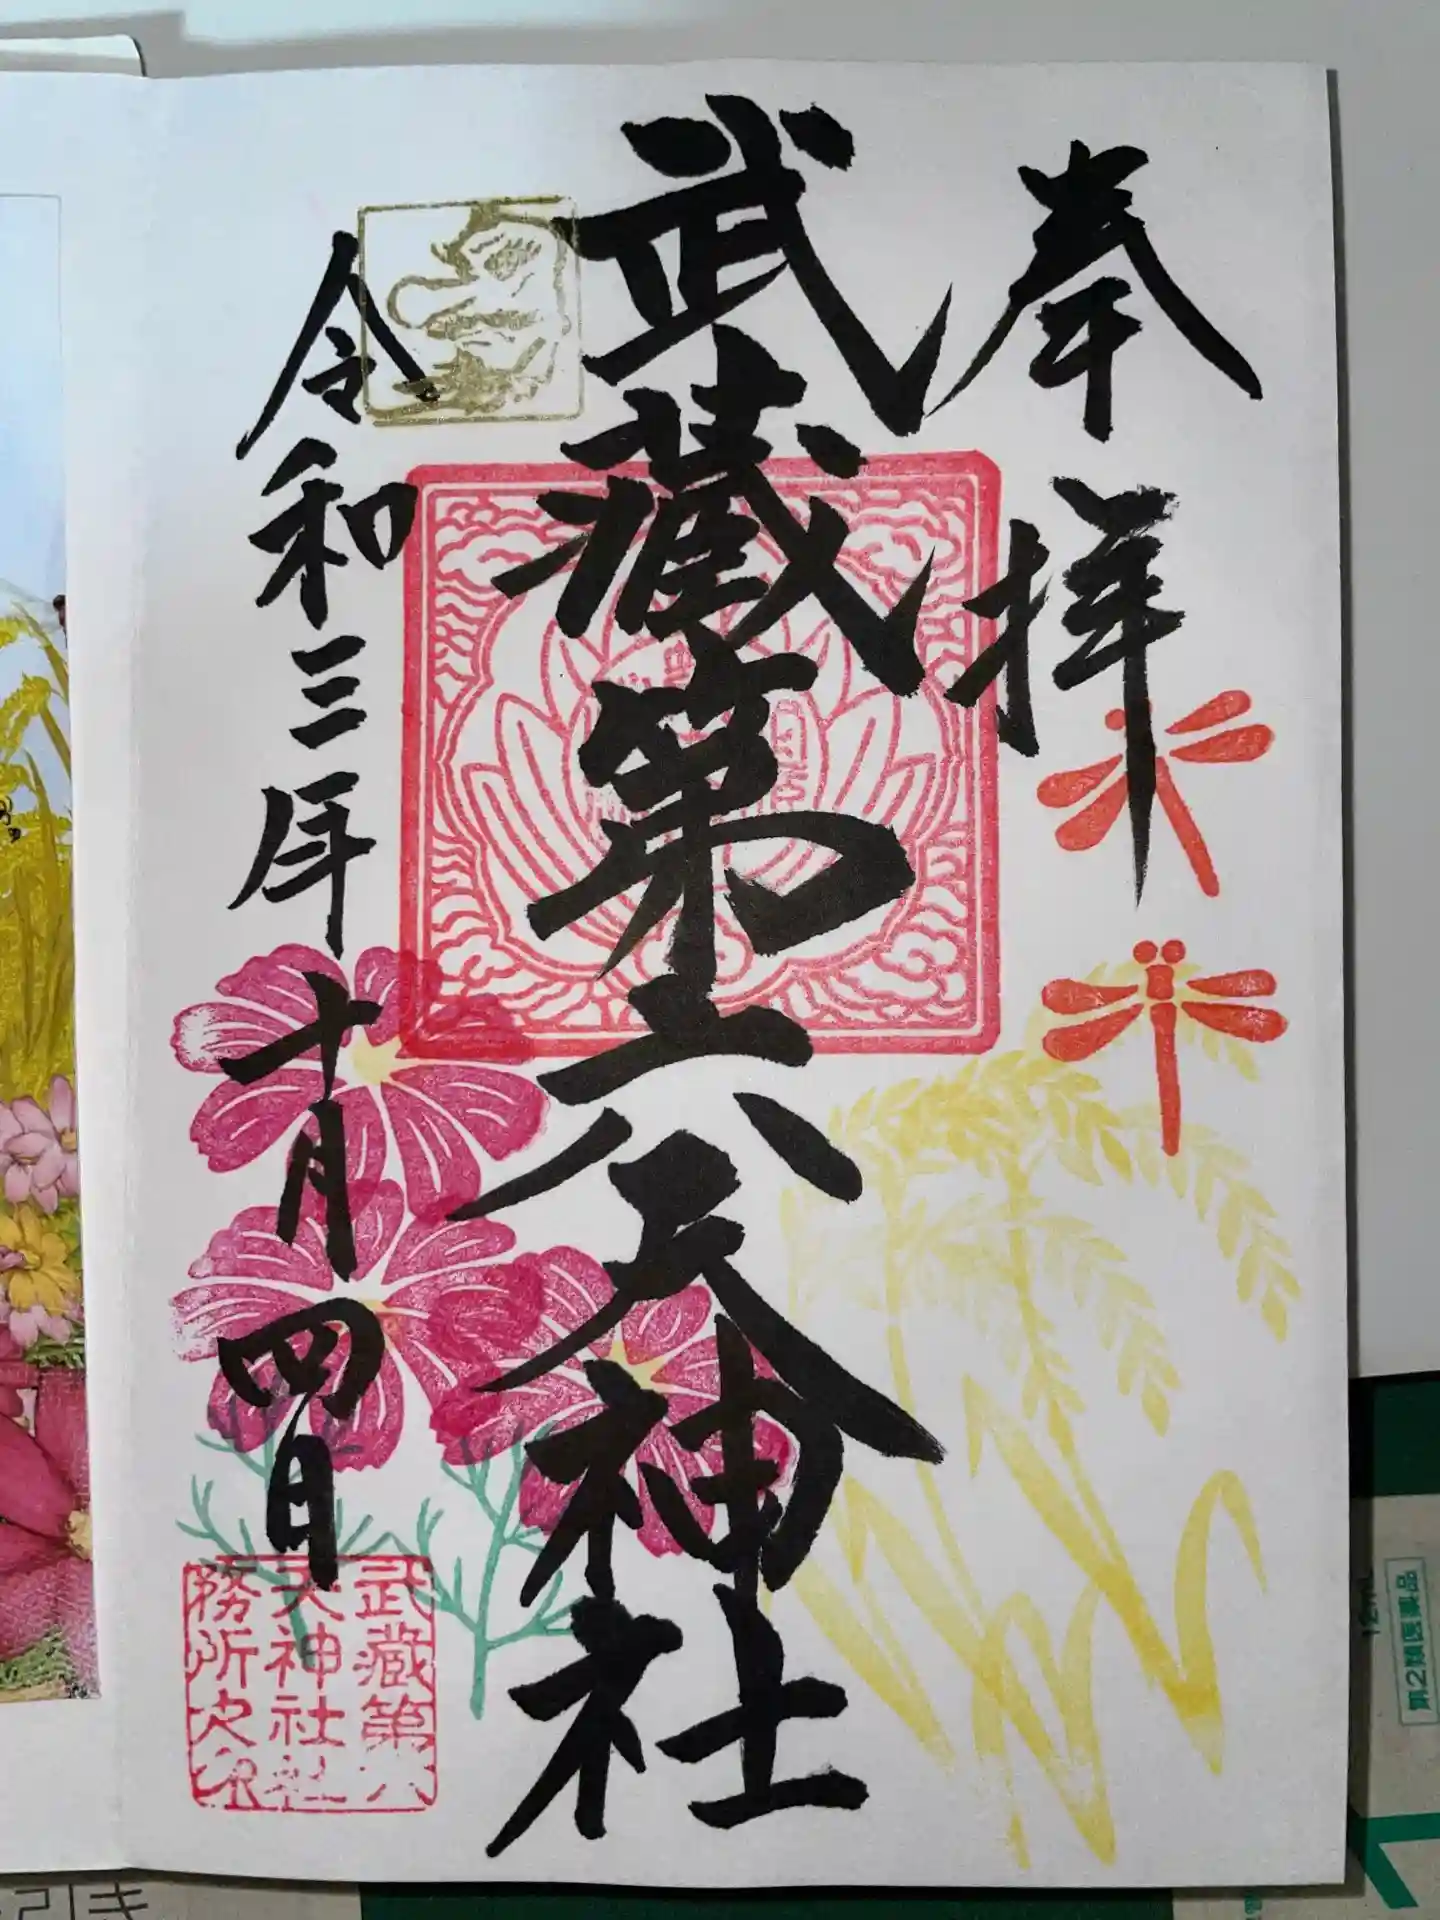 奉拝
武蔵第六天神社
令和三年十月四日
武蔵第六
天神社社
務所之印
第2類医薬品
引き